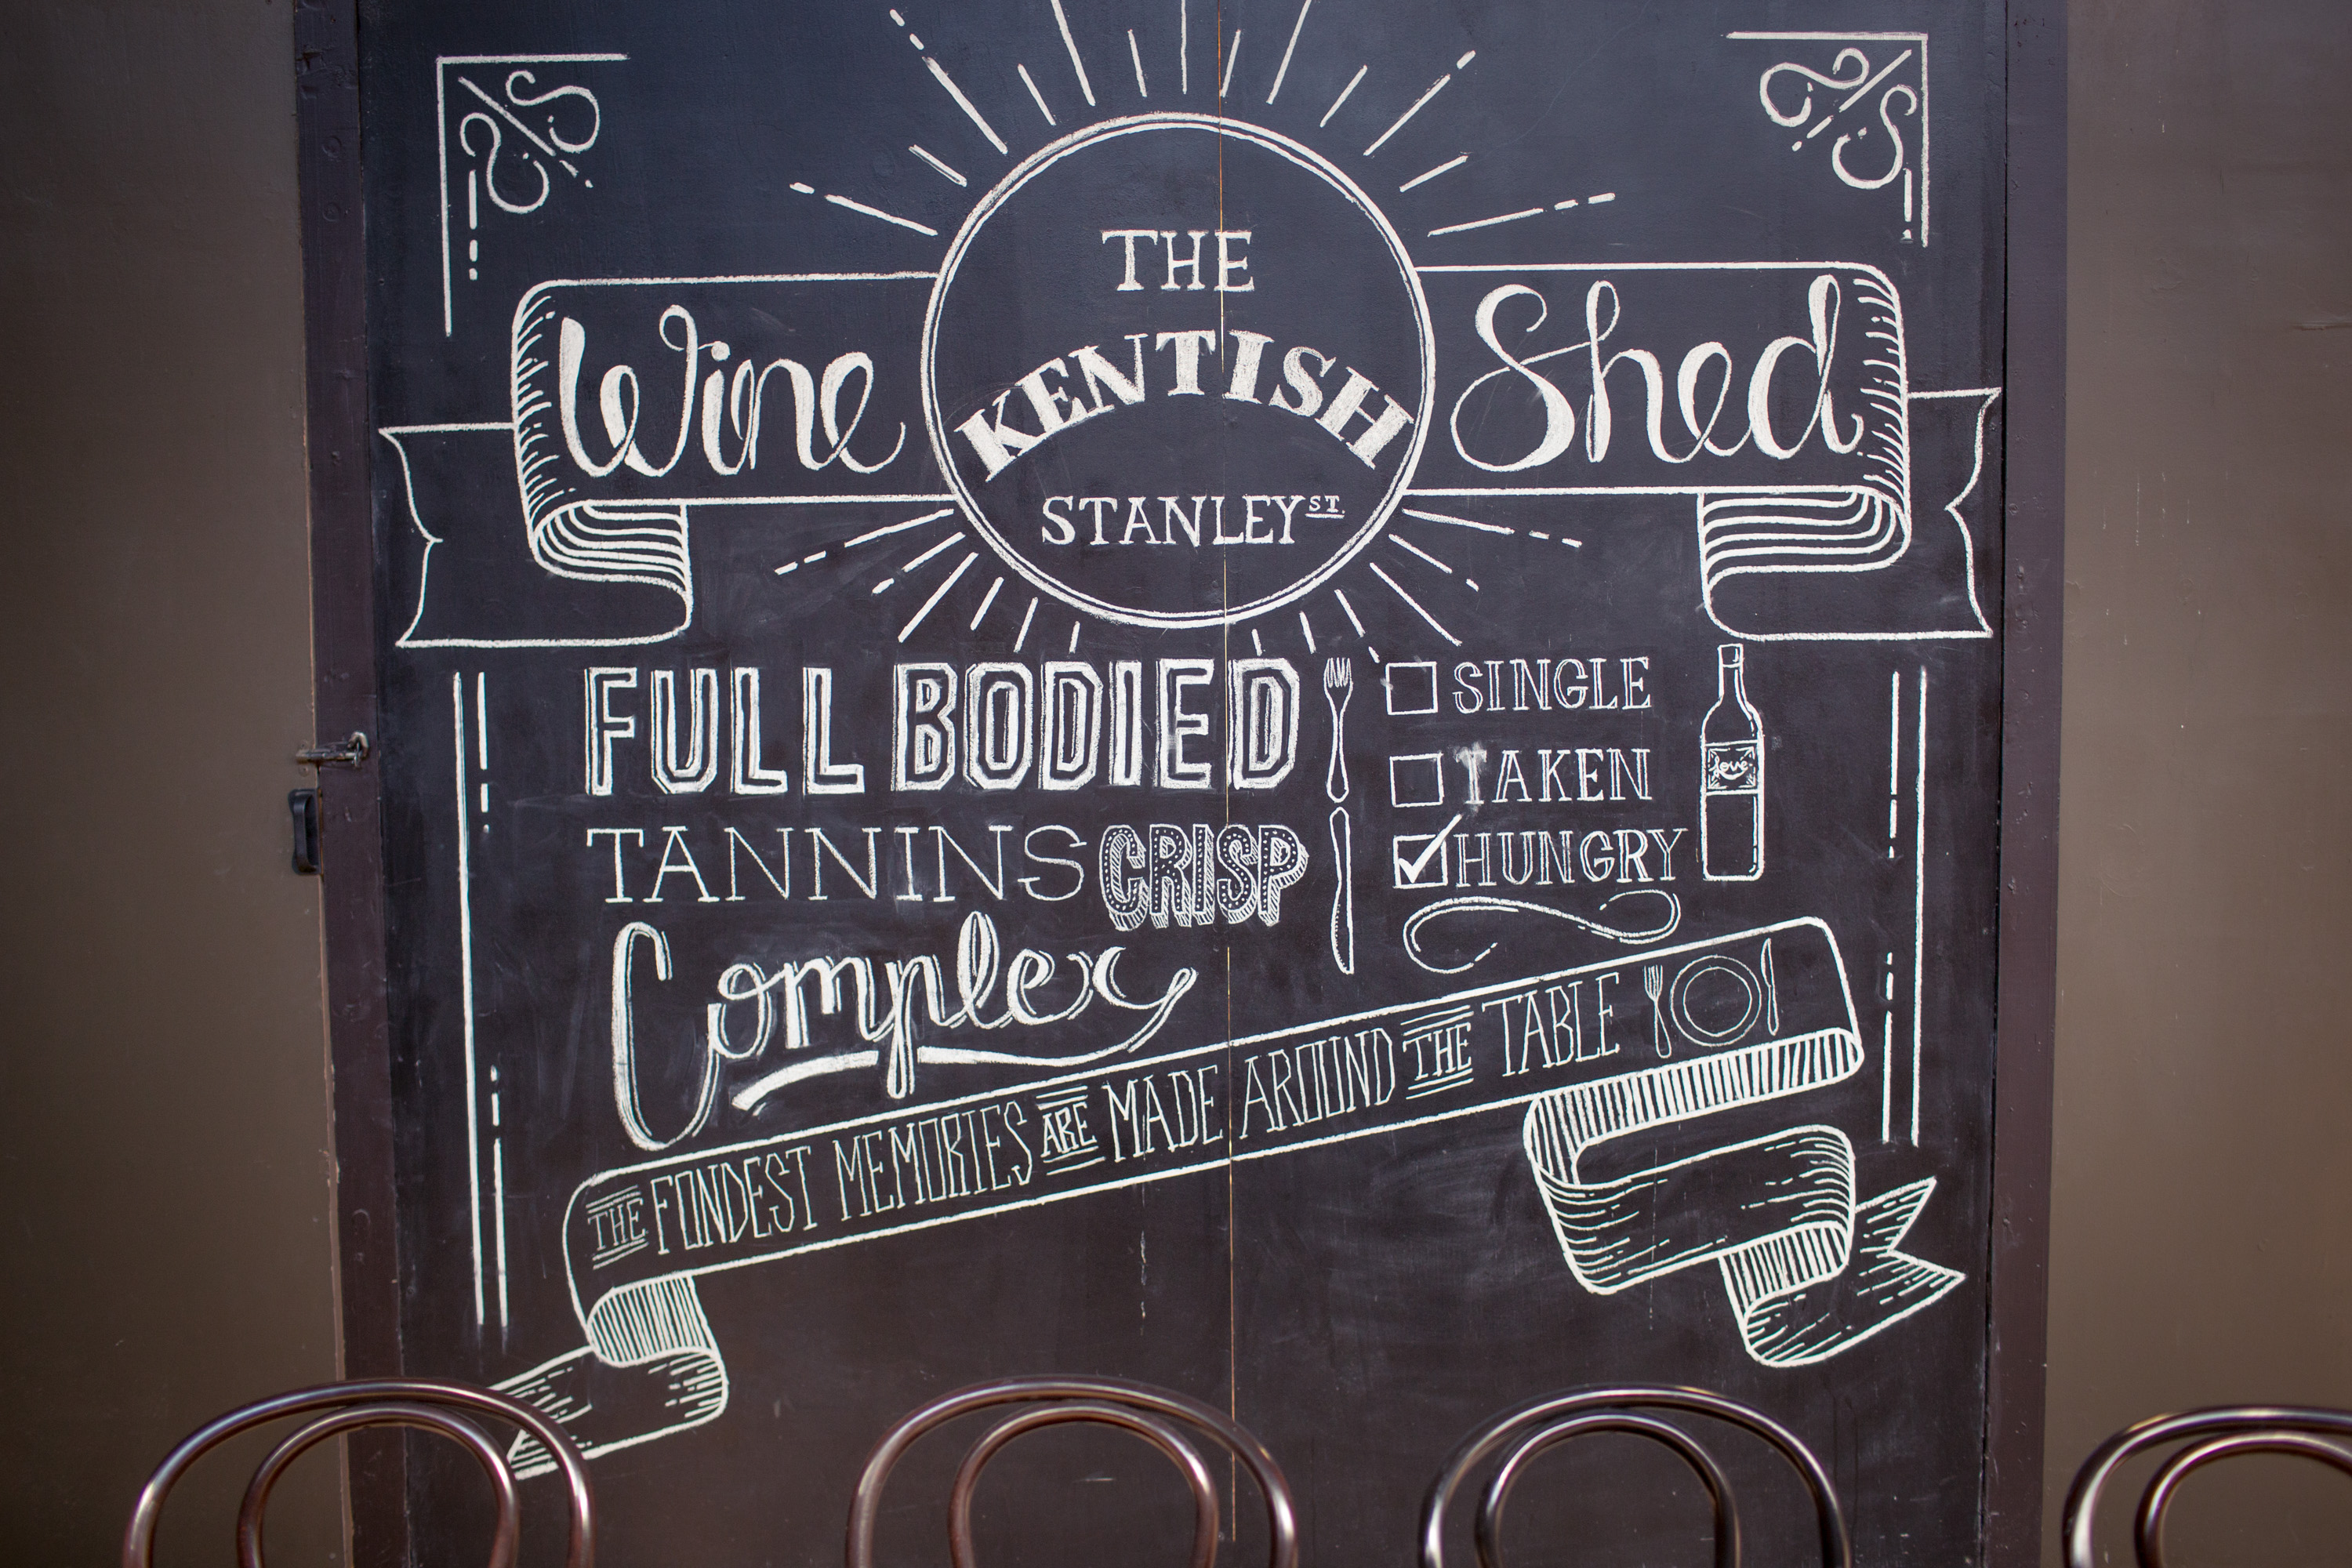 THE
Wine KENTISH Shed
STANLEY ST.
FULL BODIED
TANNINS CRISP
Complex
SINGLE
TAKEN
HUNGRY
love
THE FONDEST MEMORIES ARE MADE AROUND THE TABLE